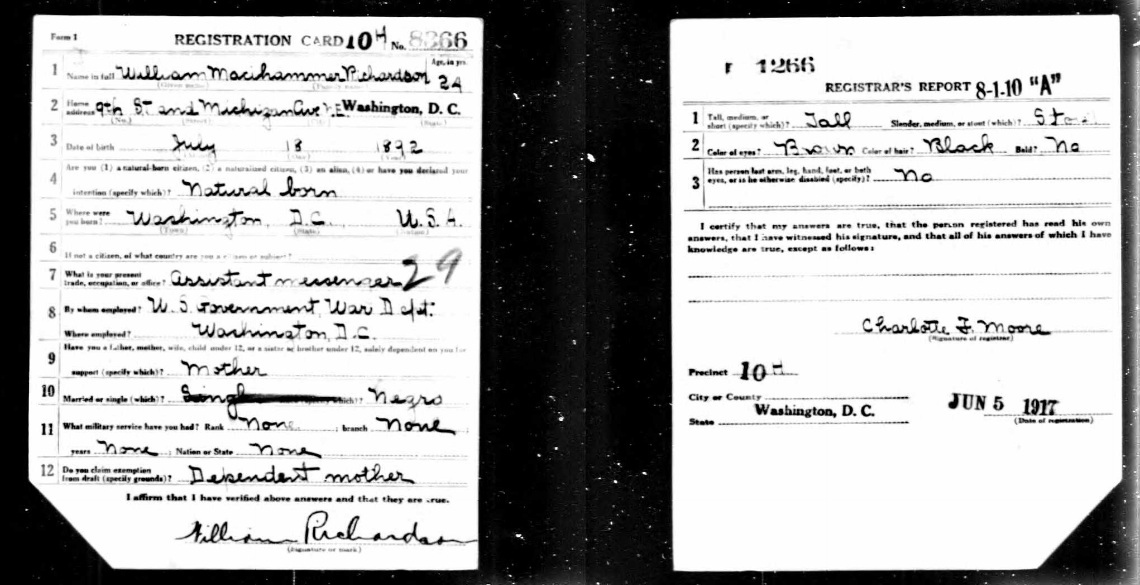 Form 1 REGISTRATION CARD 10 H No. 8366
1 Name in full William Richardson Age, in yrs. 24
2 Home address 9th St and Michigan Ave N.E. Washington, D. C.
(No.) (Street)
3 Date of birth July 18 1892
(Day) (Year)
4 Are you (1) a natural-born citizen, (2) a naturalized citizen, (3) an alien, (4) or have you declared your
intention (specify which)? Natural born
5 Where were you born? Washington, D.C. U.S.A.
(Town) (State)
6 If not a citizen, of what country are you a citizen or subject?
7 What is your present trade, occupation, or office? Assistant messenger 29
8 By whom employed? U.S. Government, War Dept.
Where employed? Washington, D.C.
9 Have you a father, mother, wife, child under 12, or a sister or brother under 12, solely dependent on you for
support (specify which)? Mother
10 Married or single (which)? Single which)? Negro
11 What military service have you had? Rank None ; branch None
years None ; Nation or State None
12 Do you claim exemption from draft (specify grounds)? Dependent mother
I affirm that I have verified above answers and that they are true.
William Richardson
(Signature or mark)
1266
REGISTRAR'S REPORT 8-1-10 "A"
1 Tall, medium, or short (specify which)? Tall Slender, medium, or stout (which)?
2 Color of eyes? Brown Color of hair? Black Bald? No
3 Has person lost arm, leg, hand, foot, or both eyes, or is he otherwise disabled (specify)? No
I certify that my answers are true, that the person registered has read his own
answers, that I have witnessed his signature, and that all of his answers of which I have
knowledge are true, except as follows:
Charlotte F. Moore
(Signature of registrar)
Precinct 10 H
City or County
Washington, D. C.
State
JUN 5 1917
(Date of registration)